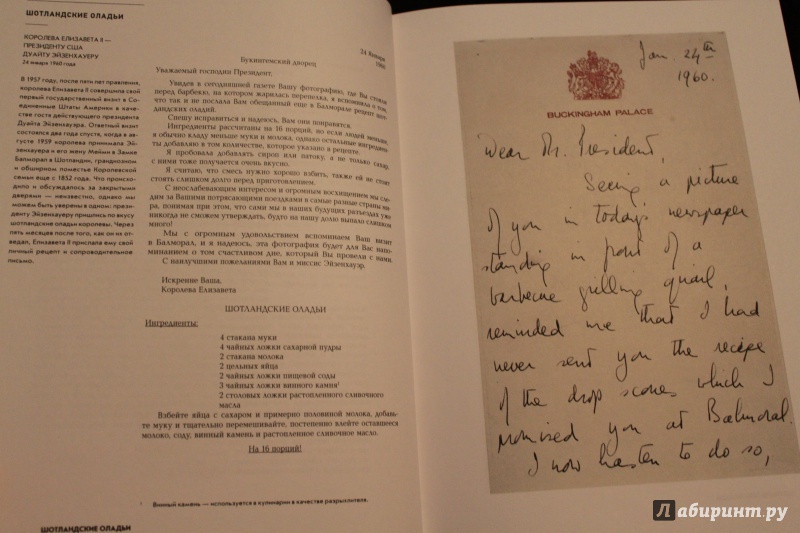 ШОТЛАНДСКИЕ ОЛАДЬИ
КОРОЛЕВА ЕЛИЗАВЕТА II —
ПРЕЗИДЕНТУ США
ДУАЙТУ ЭЙЗЕНХАУЭРУ
24 января 1960 года
В 1957 году, после пяти лет правления,
королева Елизавета II совершила свой
первый государственный визит в Со-
единенные Штаты Америки в качест-
ве гостя действующего президента
Дуайта Эйзенхауэра. Ответный визит
состоялся два года спустя, когда в ав-
густе 1959 королева принимала Эй-
зенхауэра и его жену Мейми в Замке
Балморал в Шотландии, грандиозном
и обширном поместье Королевской
семьи еще с 1852 года. Что происхо-
дило и обсуждалось за закрытыми
дверями — неизвестно, однако мы
можем быть уверены в одном: прези-
денту Эйзенхауэру пришлись по вкусу
шотландские оладьи королевы. Через
пять месяцев после того, как он их от-
ведал, Елизавета II прислала ему свой
личный рецепт и сопроводительное
письмо.
Букингемский дворец
24 января
1960
Уважаемый господин Президент,
Увидев в сегодняшней газете Вашу фотографию, где Вы стояли
перед барбекю, на котором жарилась перепелка, я вспомнила о том,
что так и не послала Вам обещанный еще в Балморале рецепт шот-
ландских оладий.
Спешу исправиться и надеюсь, Вам они понравятся.
Ингредиенты рассчитаны на 16 порций, но если людей меньше,
я обычно кладу меньше муки и молока, однако остальные ингредиен-
ты добавляю в том количестве, которое указано в рецепте.
Я пробовала добавлять сироп или патоку, а не только сахар,
с ними тоже получается очень вкусно.
Я считаю, что смесь нужно хорошо взбить, также ей не стоит
стоять слишком долго перед приготовлением.
С неослабевающим интересом и огромным восхищением мы сле-
дим за Вашими потрясающими поездками в самые разные страны ми-
ра, понимая при этом, что сами мы в наших будущих разъездах уже
никогда не сможем утверждать, будто на нашу долю выпало слишком
много!
Мы с огромным удовольствием вспоминаем Ваш визит
в Балморал, и я надеюсь, эта фотография будет для Вас напо-
минанием о том счастливом дне, который Вы провели с нами.
С наилучшими пожеланиями Вам и миссис Эйзенхауэр.
Искренне Ваша,
Королева Елизавета
ШОТЛАНДСКИЕ ОЛАДЬИ
Ингредиенты:
4 стакана муки
4 чайных ложки сахарной пудры
2 стакана молока
2 цельных яйца
2 чайных ложки пищевой соды
3 чайных ложки винного камня¹
2 столовых ложки растопленного сливочного
масла
Взбейте яйца с сахаром и примерно половиной молока, добавь-
те муку и тщательно перемешивайте, постепенно влейте оставшееся
молоко, соду, винный камень и растопленное сливочное масло.
На 16 порций!
¹ Винный камень — используется в кулинарии в качестве разрыхлителя.
ШОТЛАНДСКИЕ ОЛАДЬИ
Jan. 24th
1960.
BUCKINGHAM PALACE
Dear Mr. President,
Seeing a picture
of you in today's newspaper
standing in front of a
barbecue grilling quail,
reminded me that I had
never sent you the recipe
of the drop scones which I
promised you at Balmoral.
I now hasten to do so,
Лабиринт.ру